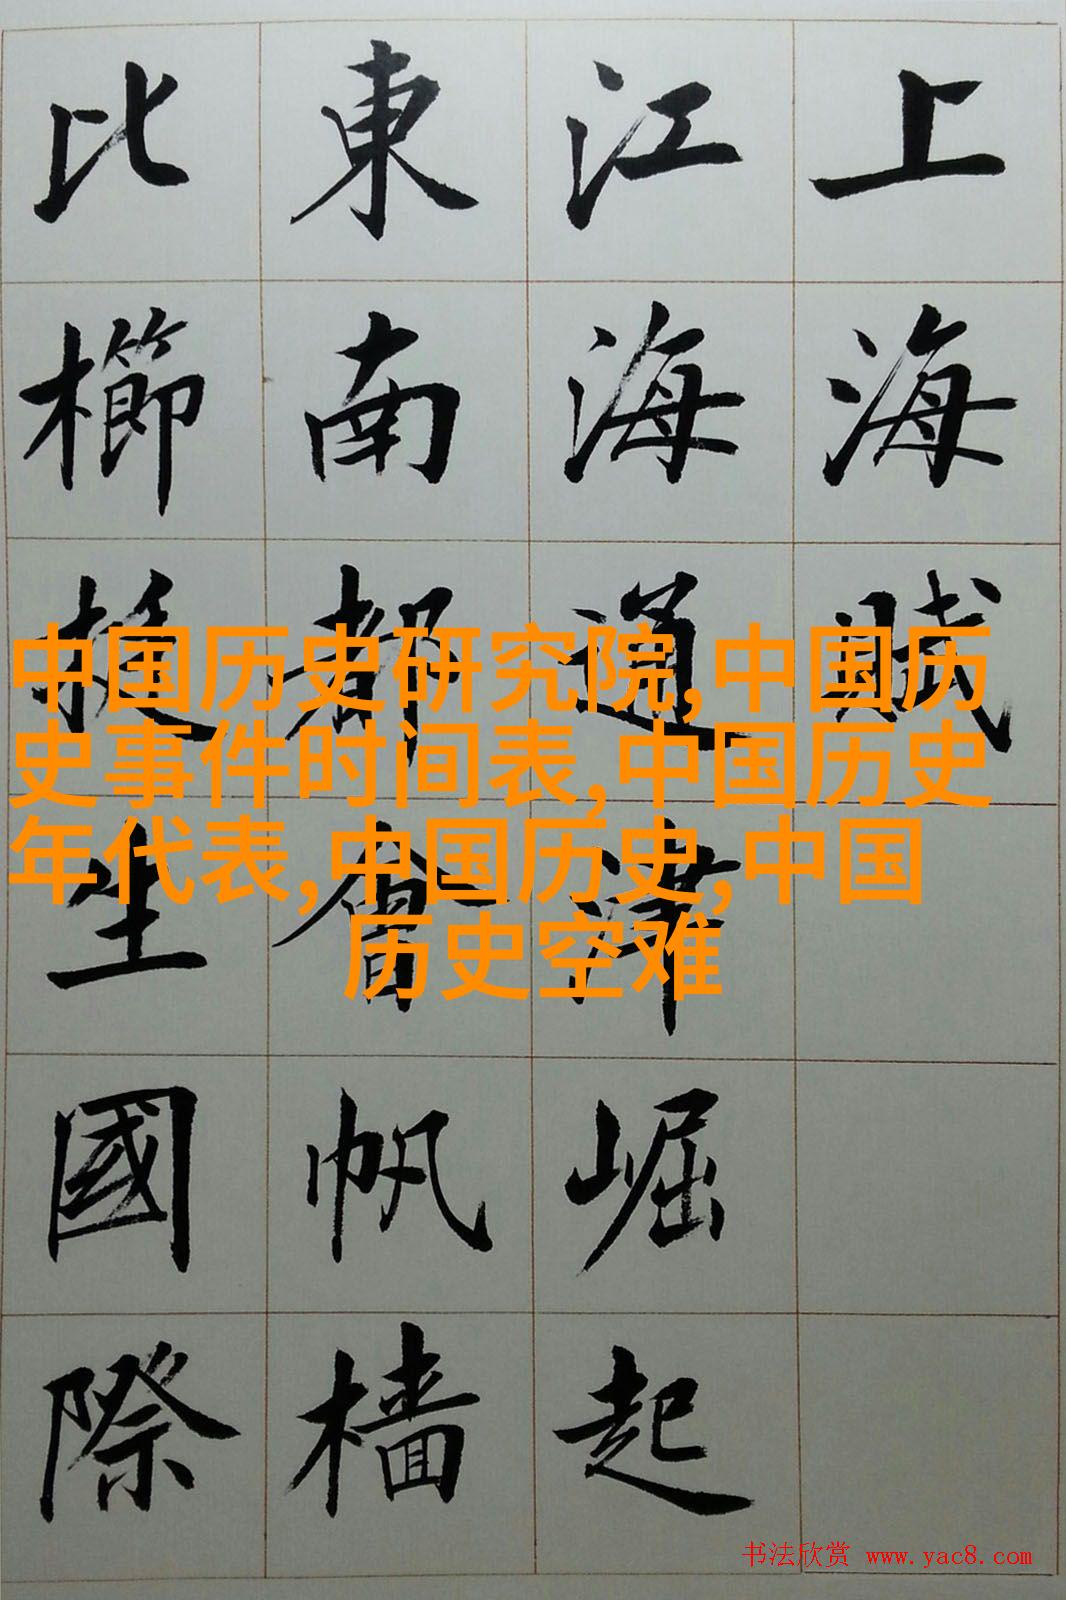 上海賦
江海通津崛起
東南都會帆檣
比櫛挺生國際
中国历史研究院,中国历
史事件时间表,中国历史
年代表,中国历史,中国
历史空难
书法欣赏 www.yac8.com